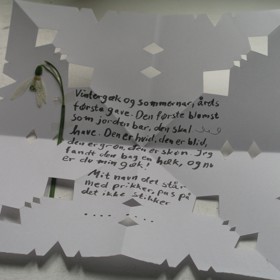 Vintergæk og sommernar, årets
første gave. Den første blomst
som jorden bar, den skal du
have. Den er hvid, den er bliv,
den er grøn, den er skøn. Jeg
fandt den bag en hæk, og nu
er du min gæk!
Mit navn det står
med prikker, pas på
det ikke stikker